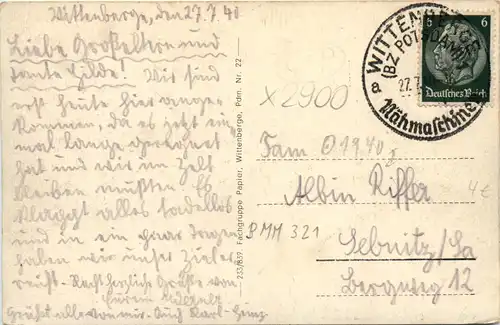 Wittenberge, den 27.7.40
Liebe Großeltern und
Tante Hilde! Wir sind
erst heute hier ange-
kommen, da es jetzt ein-
mal lange geregnet
hat und wir im Zelt
bleiben mußten. Es
klappt alles tadellos
und in ein paar Tagen
haben wir unser Ziel er-
reicht. Recht herzliche Grüße von
Eurem
Grüßt alle von mir. Auch Karl-Heinz.
253/839 Fachgruppe Papier, Wittenberge, Pbm. Nr. 22
WITTENBERGE
(BZ POTSDAM)
a
27.7.
Nähmaschinen
6 6
Deutsches Reich
x 2900
Fam 01940
Albin Riffer
4€
8MM 321
Sebnitz/Sa
Bergweg 12